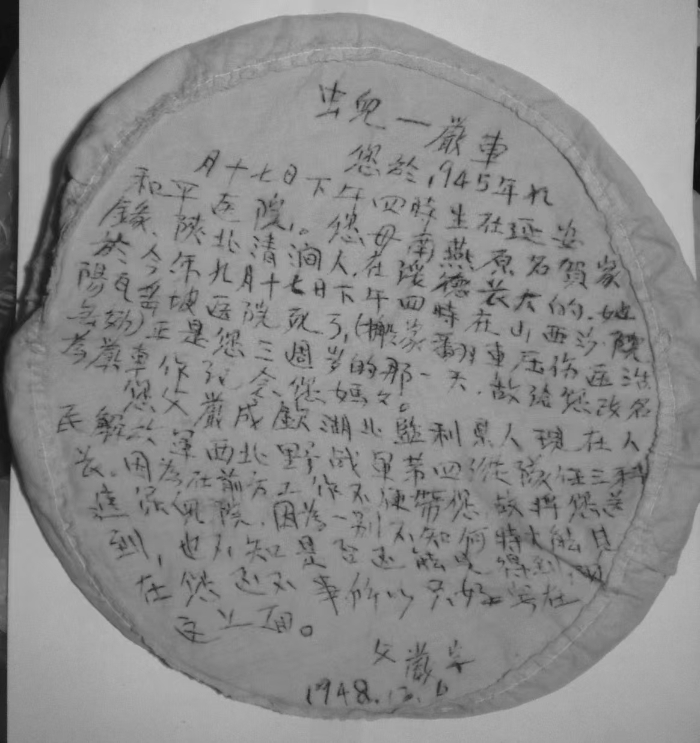 出兒一嚴車
您於1945年九
月十七日下午四時生在延安
和平医院。您母南燕原名賀家
陝北清澗人在
於今年九月十七日下午四時在山西汾
陽瓦窑坡医院死了,(搬家翻車压伤医
正是您三週岁的那一天,故給您改名
為嚴車作紀念您媽媽。
您父嚴成欽湖北監利縣人現在人
民解放軍西北野战軍第四縱隊任三科
長。因為在前方工作不便帶您,故將您送
這保兒院,因為一别不知何時才能見
到,也不知是否还能見得到,現
在您还不事所以只好写在
這上面。
父嚴字
1948.12.6